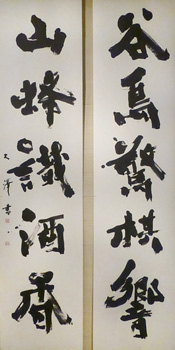 谷鳥驚棋響
山蜂識酒香
天澤書